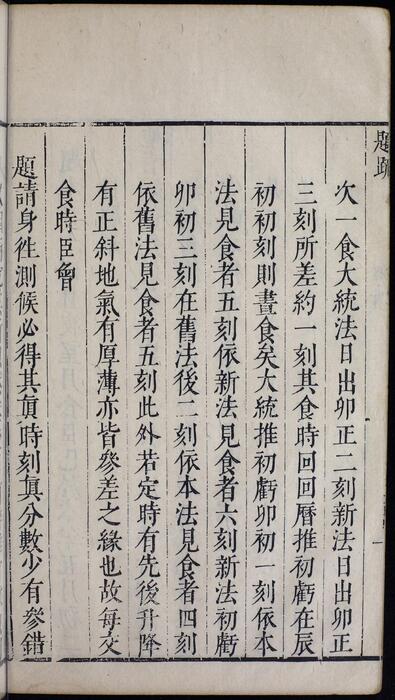 題疏
次一食大統法日出卯正二刻新法日出卯正
三刻所差約一刻其食時回回曆推初虧在辰
初初刻則晝食矣大統推初虧卯初一刻依本
法見食者五刻依新法見食者六刻新法初虧
卯初三刻在舊法後二刻依本法見食者四刻
依舊法見食者五刻此外若定時有先後升降
有正斜地氣有厚薄亦皆參差之緣也故每交
食時臣曾
題請身徃測候必得其眞時刻眞分數少有參錯